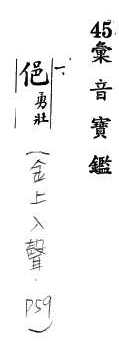 45彙音寶鑑
一 俋 勇壯
(金上入聲．P59)